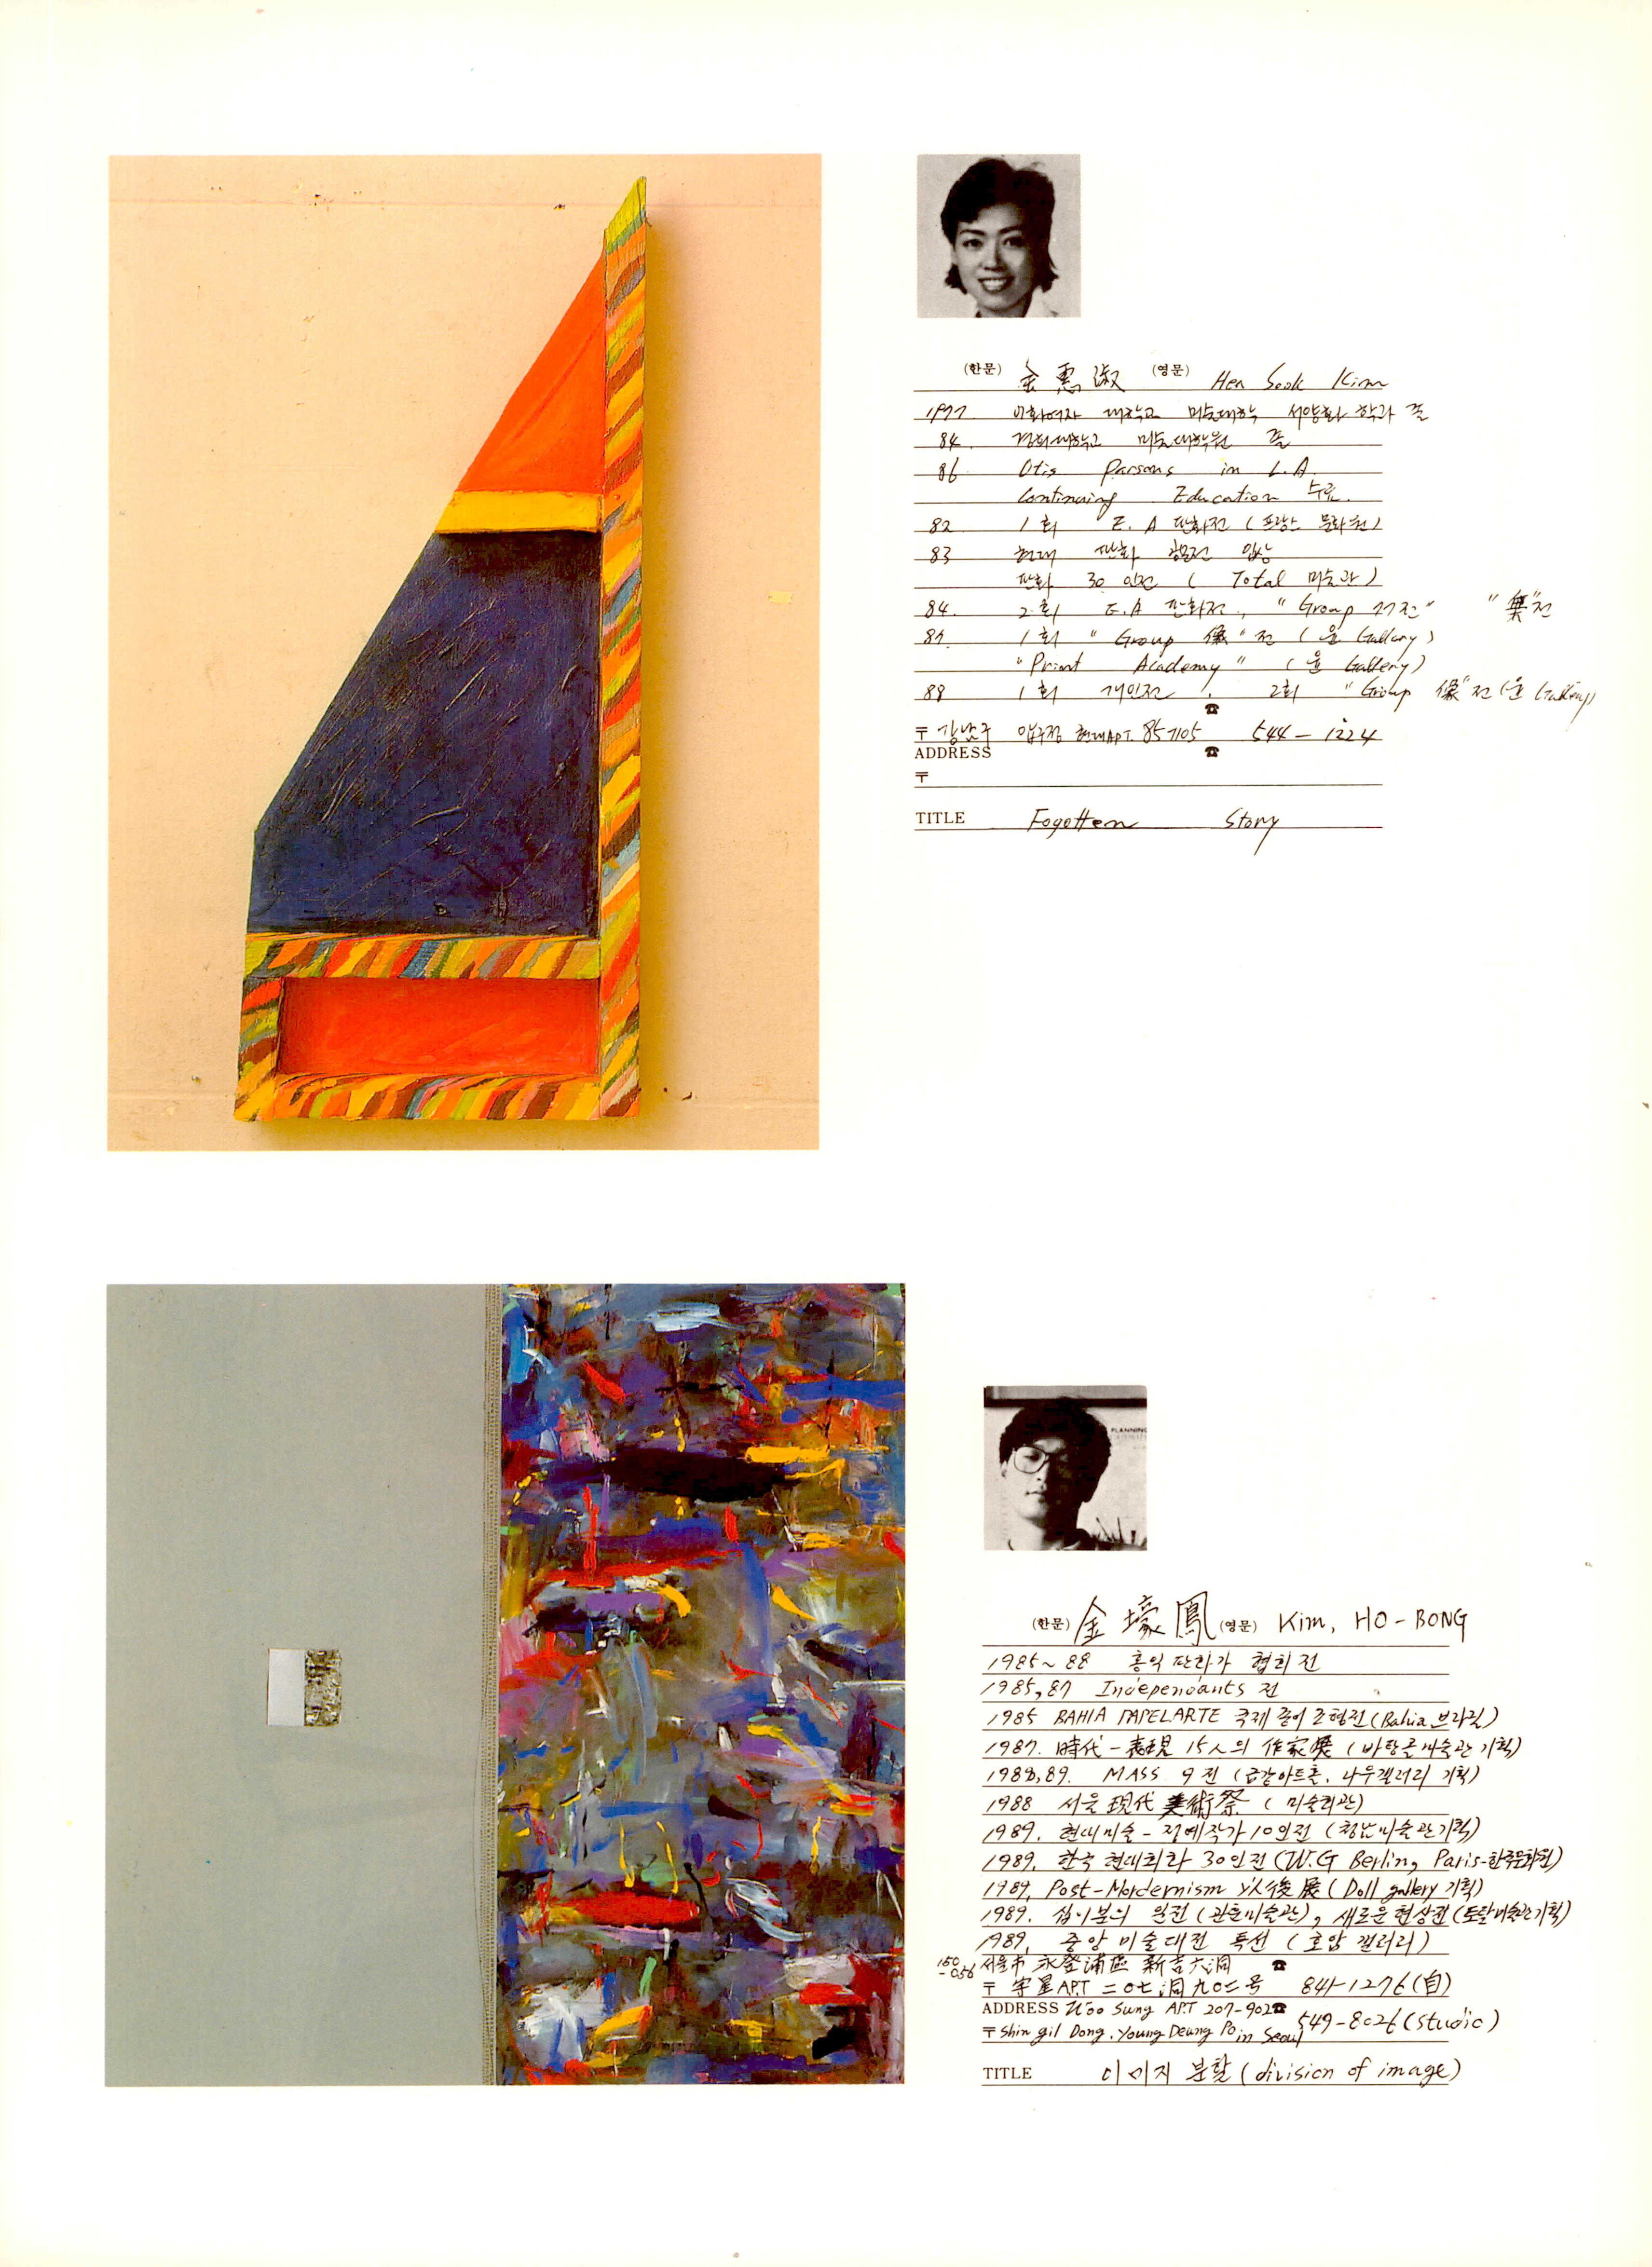 (한문) 金惠淑 (영문) Hea Sook Kim
1977 이화여자 대학교 미술대학 서양화 학과 졸
84. 경희대학교 미술대학원 졸
86 Otis Parsons in L.A.
Continuing Education 수료.
82 1회 E.A 판화전 (프랑스 문화원)
83 현대 판화 공모전 입상
판화 30인전 ( Total 미술관 )
84. 2회 E.A 판화전, "Group 전" "集"전
1회 "Group 像"전 ( 윤 Gallery )
"Print Academy" ( 윤 Gallery )
88 1회 개인전, 2회 "Group 像"전 (윤 Gallery)
☎
〒 강남구 압구정 현대APT. 85-1105 544-1224
ADDRESS ☎
〒
TITLE Fogotten Story
PLANNING
(한문) 金壕鳳 (영문) Kim, HO-BONG
1985~88 홍익 판화가 협회전
1985,87 Independants 전
1985 BAHIA PAPELARTE 국제 종이 조형전 (Bahia, 브라질)
1987. 時代-表現 15人의 作家展 (바탕골미술관 기획)
1988,89. MASS 9전 (금강아트홀, 나우갤러리 기획)
1988 서울 現代 美術祭 ( 미술회관)
1989. 현대미술-정예작가 10인전 (청남미술관기획)
1989. 한국 현대회화 30인전 (W.G Berlin, Paris-한국문화원)
1989. Post-Mordernism 以後展 (Doll gallery 기획)
1989. 십이분의 일전 (관훈미술관), 새로운 현상전 (토탈미술관기획)
1989. 중앙미술대전 특선 (호암 갤러리)
150-056 서울市 永登浦區 新吉六洞 ☎
〒 宇星APT 二○七洞 九○二号 841-1276(自)
ADDRESS Woo Sung APT 207-902 ☎
〒 Shin gil Dong. Young Deung Po in Seoul 549-8026 (studio)
TITLE 이미지 분할 (division of image)